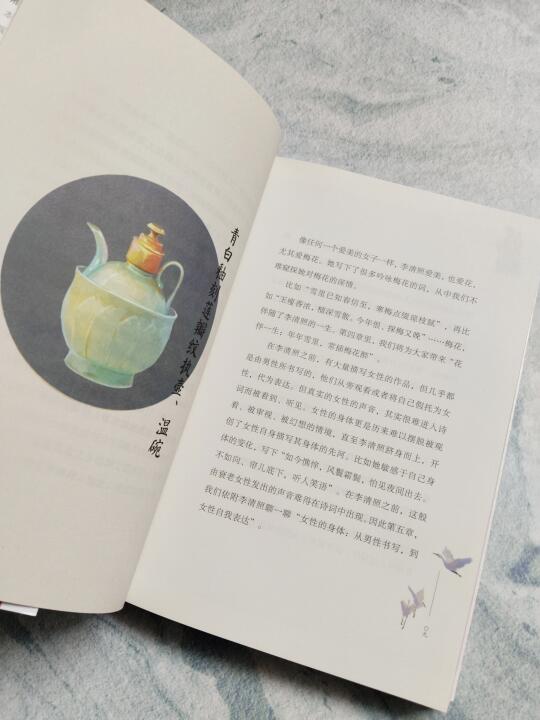 青白釉刻莲瓣纹执壶、温碗
像任何一个爱美的女子一样，李清照爱美，也爱花，
尤其爱梅花。她写下了很多吟咏梅花的词，从中我们不
难窥探她对梅花的深情。
比如“雪里已知春信至，寒梅点缀琼枝腻”，再比
如“玉瘦香浓，檀深雪散。今年恨、探梅又晚”……梅花，
伴随了李清照的一生。第四章里，我们将为大家带来“花
伴一生：年年雪里，常插梅花醉”。
在李清照之前，有大量描写女性的作品，但几乎都
是由男性所书写的，他们从旁观看或者将自己假托为女
性，代为表达。但真实的女性的声音，其实很难进入诗
词而被看到、听见。女性的身体更是历来难以摆脱被观
看、被审视、被幻想的情境，直至李清照跻身而上，开
创了女性自身描写其身体的先河。比如她敏感于自己身
体的变化，写下“如今憔悴，风鬟霜鬓，怕见夜间出去。
不如向、帘儿底下，听人笑语”。在李清照之前，这般
由衰老女性发出的声音难得在诗词中出现。因此第五章，
我们依附李清照聊一聊“女性的身体：从男性书写，到
女性自我表达”。